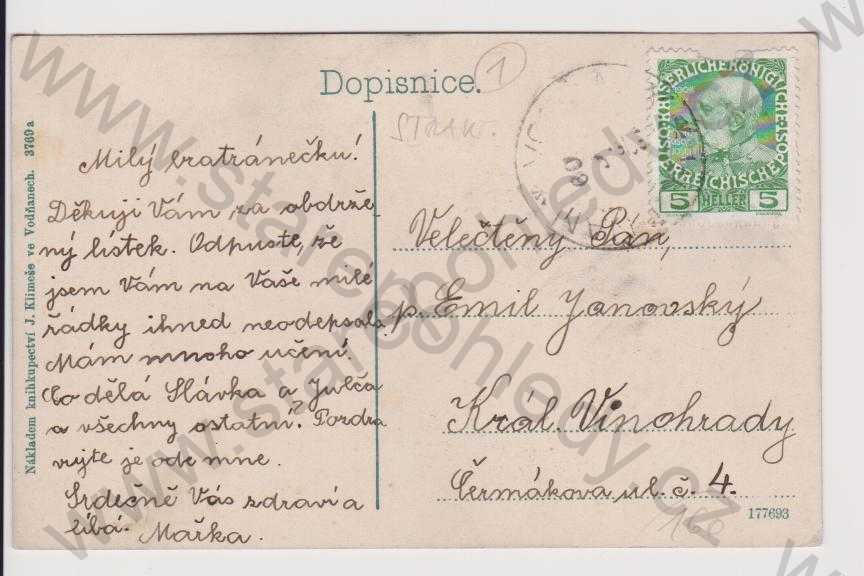 Dopisnice.
1
STRAK.
Milý bratránečku!
Děkuji Vám za obdrže
ný lístek. Odpusťte, že
jsem Vám na Vaše milé
řádky ihned neodepsala.
Mám mnoho učení.
Co dělá Slávka a Julča
a všechny ostatní? Pozdra
vujte je ode mne.
Srdečně Vás zdraví a
líbá.
Mařka.
Velectěný Pan,
p. Emil Janovský
Král. Vinohrady
Čermákova ul. č. 4.
177693
Nákladem knihkupectví J. Klimeše ve Vodňanech. 3769 a
KAISERLICHE KÖNIGLICHE
ÖSTERREICHISCHE POST
5 HELLER 5
www.starepohledy.cz